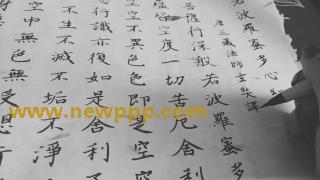 若波羅蜜多心
唐三藏法師玄奘譯
薩行深般若波羅蜜多
皆空度一切苦厄舍利
空不異色色即是空空
想行識亦復如是舍利子
不生不滅不垢不淨
空中無色無受想行
www.newppp.com